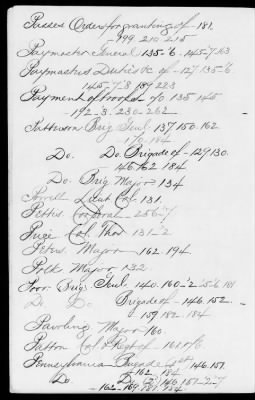 Passes Orders for granting of - 181.
- 199. 210 215
Paymaster General 135-6. 145-7. 163
Paymasters Duties &c of - 127. 135-6.
145-7-8 189 223
Payment of troops 70 135 145
- 192-3. 230-262
Patterson Brig Genl 137 150. 162
179. 184
Do. Do. Brigade of - 129. 130.
146. 162 184
Do. Brig Major 134
Lieut Col. 131.
Pettis Corporal - 256-7
Col. Thos 131-2
Peters Major - 162. 194.
Polk Major 132
Poor Brig. Genl. 140. 160-2 181
Do Do Brigade of - 146. 152.
- 159 182. 184
Pawling Major 160.
Patton Col & Regt of - 161.
Pennsylvania Brigade 1st 146. 151.
162. 184
Do. Do 2d 140. 151-2-7
- 162-169. 181. 184